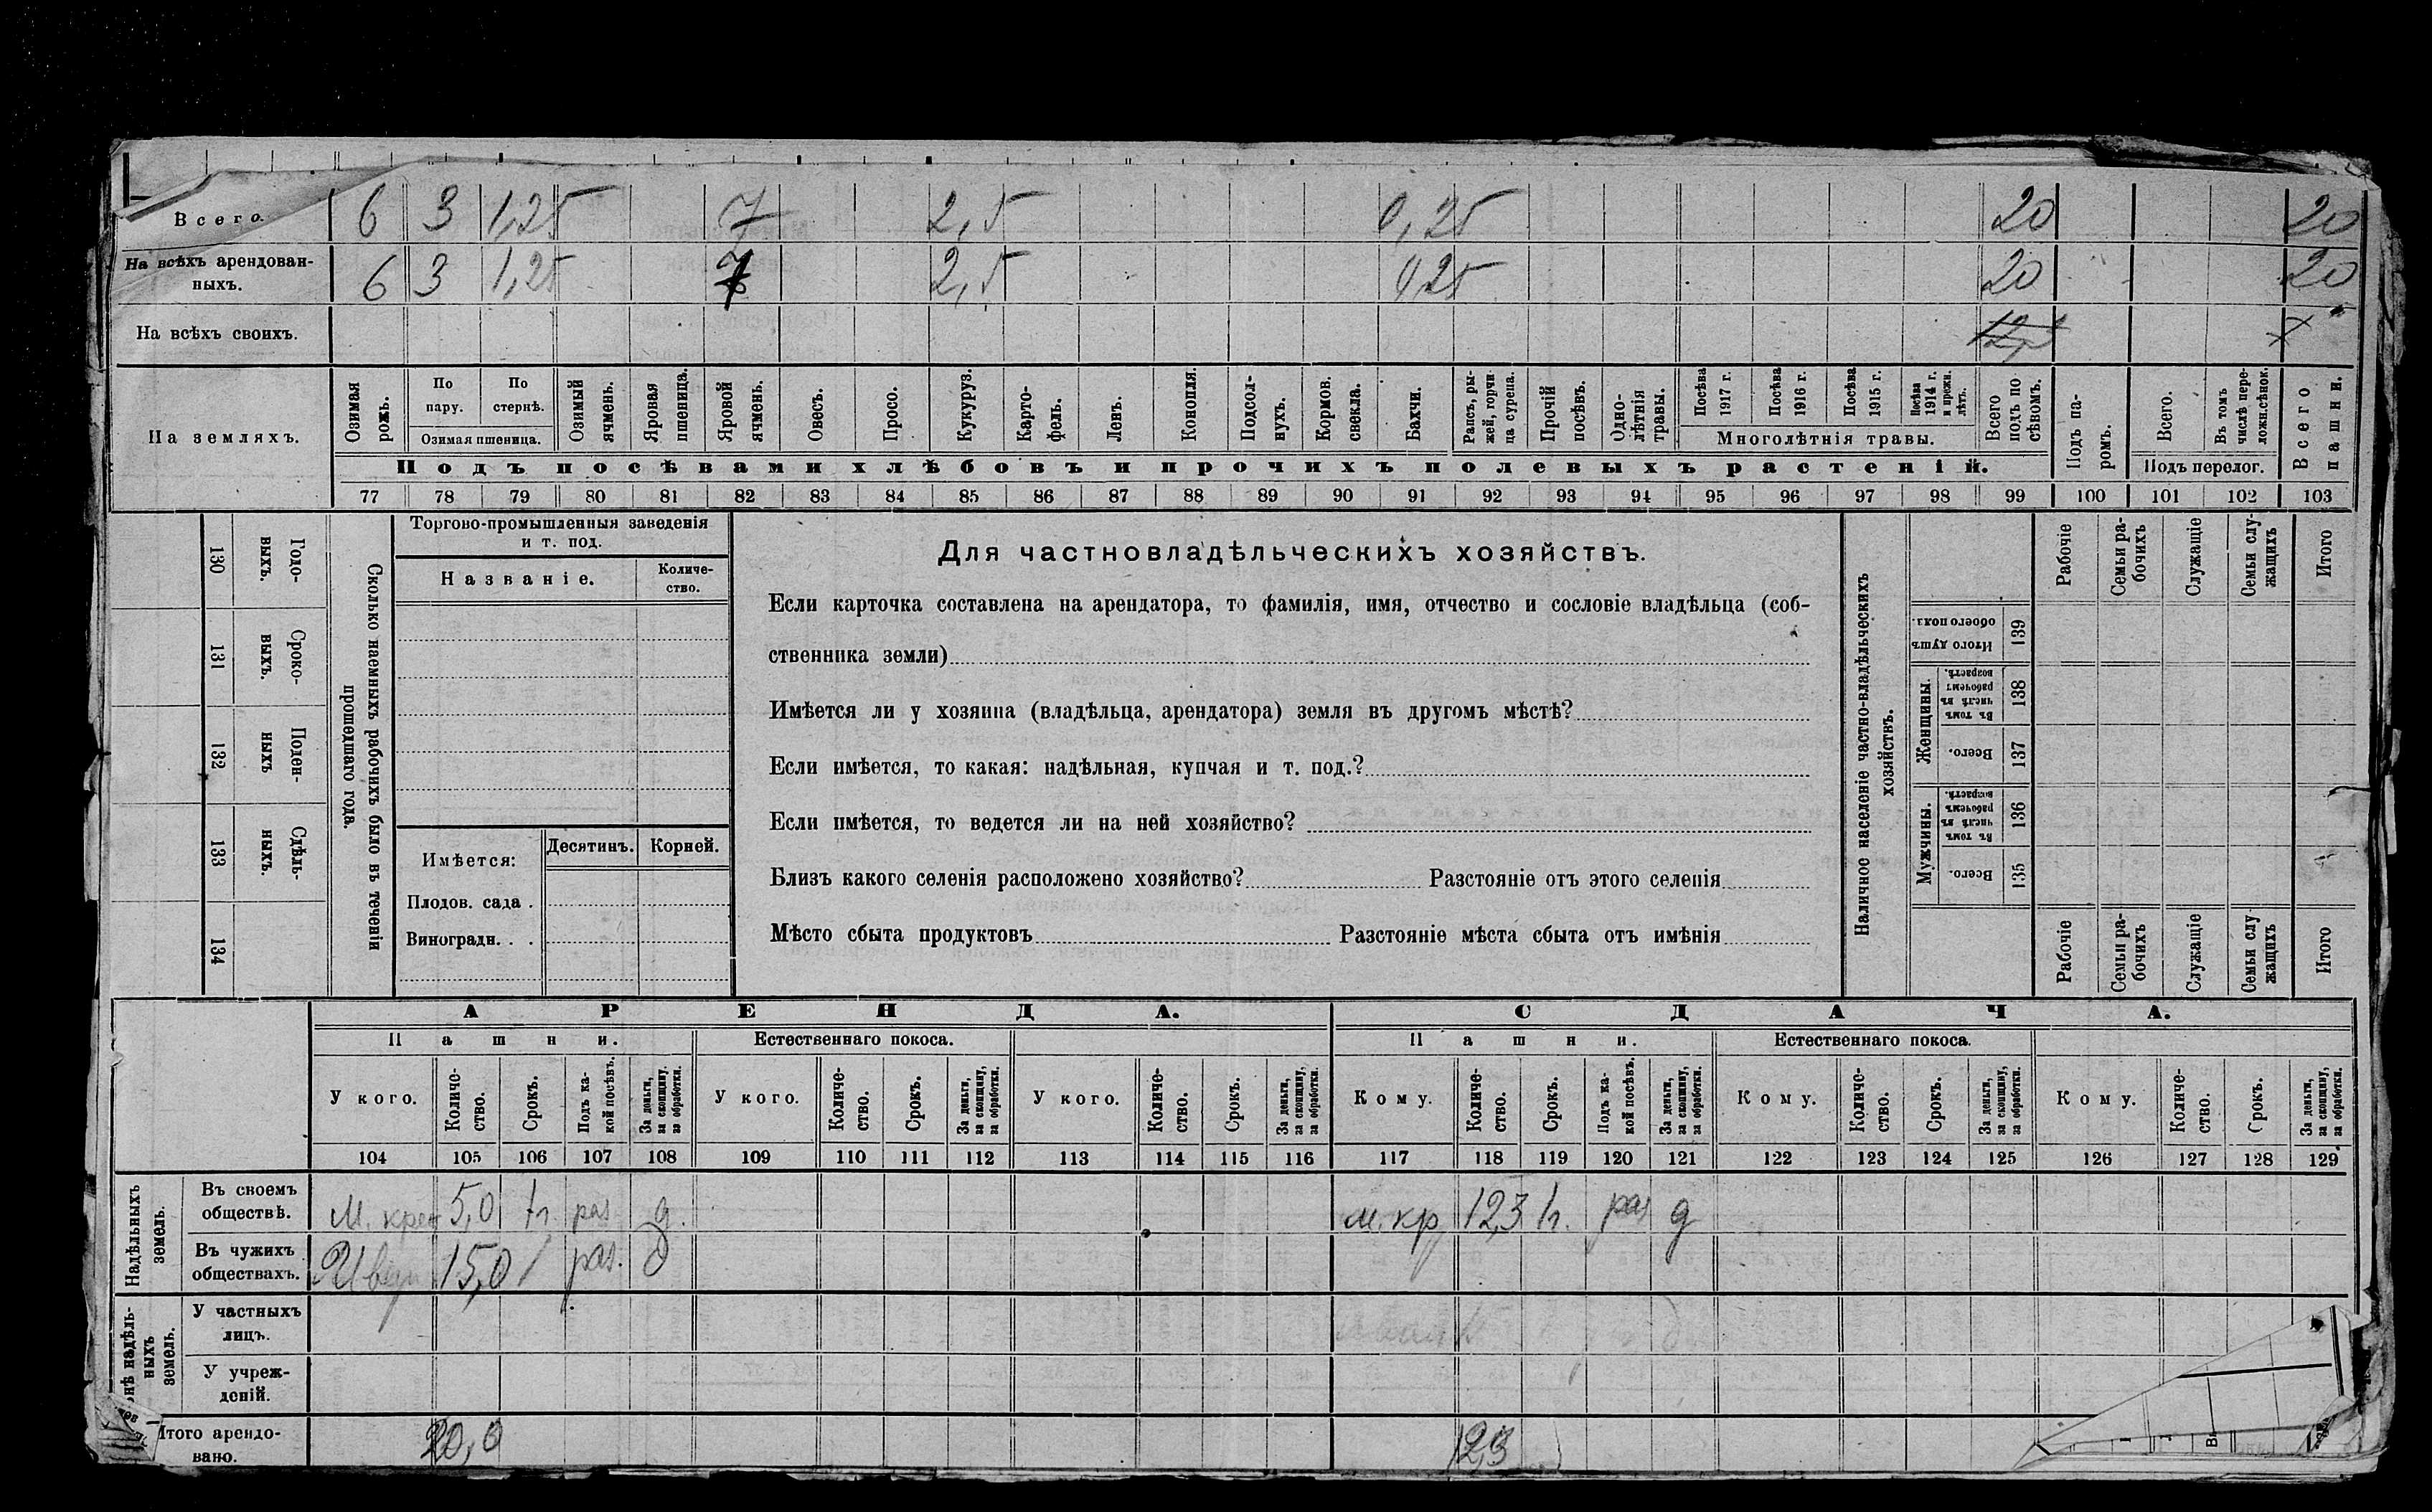 Всего. 6 3 1,25 7 2,5 0,25 20 20
На всѣхъ арендован-
ныхъ. 6 3 1,25 7 2,5 0,25 20 20
На всѣхъ своихъ.
На земляхъ.
Озимая рожь.
По пару.
По стернѣ.
Озимая пшеница.
Озимый ячмень.
Яровая пшеница.
Яровой ячмень.
Овесъ.
Просо.
Кукуруз.
Карто-
фель.
Ленъ.
Конопля.
Подсол-
нухъ.
Кормов.
свекла.
Бахчи.
Рапсъ, ры-
жей, горчи-
ца сурепа.
Прочій
посѣвъ.
Одно-
лѣтнія
травы.
Посѣва
1917 г.
Посѣва
1916 г.
Посѣва
1915 г.
Посѣва
1914 г.
и прежн.
лѣтъ.
Многолѣтнія травы.
Всего
подъ по
сѣвомъ.
Подъ па-
ромъ.
Всего.
Въ томъ
числѣ пере-
ложн.сѣнок.
Подъ перелог.
Всего
пашни.
Подъ посѣвами хлѣбовъ и прочихъ полевыхъ растеній.
77 78 79 80 81 82 83 84 85 86 87 88 89 90 91 92 93 94 95 96 97 98 99 100 101 102 103
130 Годо-
выхъ.
131 Сроко-
выхъ.
132 Поден-
ныхъ
133 Сдѣль-
ныхъ.
134
Сколько наемныхъ рабочихъ было въ теченіи
прошедшаго года.
Торгово-промышленныя заведенія
и т. под.
Названіе.
Количе-
ство.
Имѣется:
Десятинъ.
Корней.
Плодов. сада .
Виноградн. . .
Для частновладѣльческихъ хозяйствъ.
Если карточка составлена на арендатора, то фамилія, имя, отчество и сословіе владѣльца (соб-
ственника земли)
Имѣется ли у хозяина (владѣльца, арендатора) земля въ другомъ мѣстѣ?
Если имѣется, то какая: надѣльная, купчая и т. под.?
Если имѣется, то ведется ли на ней хозяйство?
Близъ какого селенія расположено хозяйство? Разстояніе отъ этого селенія
Мѣсто сбыта продуктовъ Разстояніе мѣста сбыта отъ имѣнія
Наличное населеніе частно-владѣльческихъ
хозяйствъ.
Рабочіе
Семьи ра-
бочихъ
Служащіе
Семьи слу-
жащихъ
Итого
Итого душъ
обоего пола.
139
Женщины.
Въ томъ
числѣ въ
рабочемъ
возрастѣ.
138
Всего.
137
Мужчины.
Въ томъ
числѣ въ
рабочемъ
возрастѣ.
136
Всего.
135
Рабочіе
Семьи ра-
бочихъ
Служащіе
Семьи слу-
жащихъ
Итого
АРЕНДА.
СДАЧА.
Пашни.
Естественнаго покоса.
Пашни.
Естественнаго покоса.
У кого.
Количе-
ство.
Срокъ.
Подъ ка-
кой посѣвъ.
За деньги,
за скопщину,
за обработки.
У кого.
Количе-
ство.
Срокъ.
За деньги,
за скопщину,
за обработки.
У кого.
Количе-
ство.
Срокъ.
За деньги,
за скопщину,
за обработки.
Кому.
Количе-
ство.
Срокъ.
Подъ ка-
кой посѣвъ.
За деньги,
за скопщину,
за обработки.
Кому.
Количе-
ство.
Срокъ.
За деньги,
за скопщину,
за обработки.
Кому.
Количе-
ство.
Срокъ.
За деньги,
за скопщину,
за обработки.
104 105 106 107 108 109 110 111 112 113 114 115 116 117 118 119 120 121 122 123 124 125 126 127 128 129
Надѣльныхъ
земель.
Въ своемъ
обществѣ. 5,0 1г. раз д. м. кр 12,3 1г. раз д
Въ чужихъ
обществахъ. 15,0 1 раз. д
У частныхъ
лицъ.
ныхъ
земель.
У учреж-
деній.
Итого арендо-
вано. 20,0 12,3